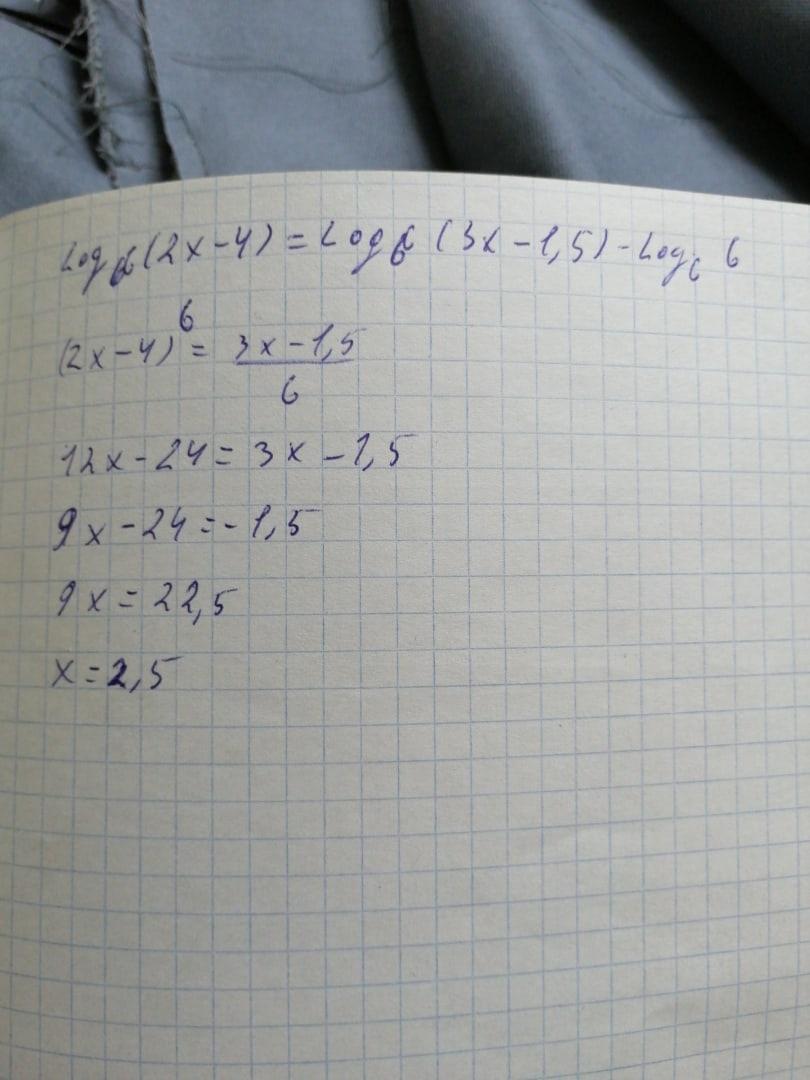 Log₆(2x-4) = Log₆(3x-1,5) - Log₆ 6
(2x-4)⁶ = (3x-1,5)/6
12x-24 = 3x-1,5
9x-24 = -1,5
9x = 22,5
x = 2,5